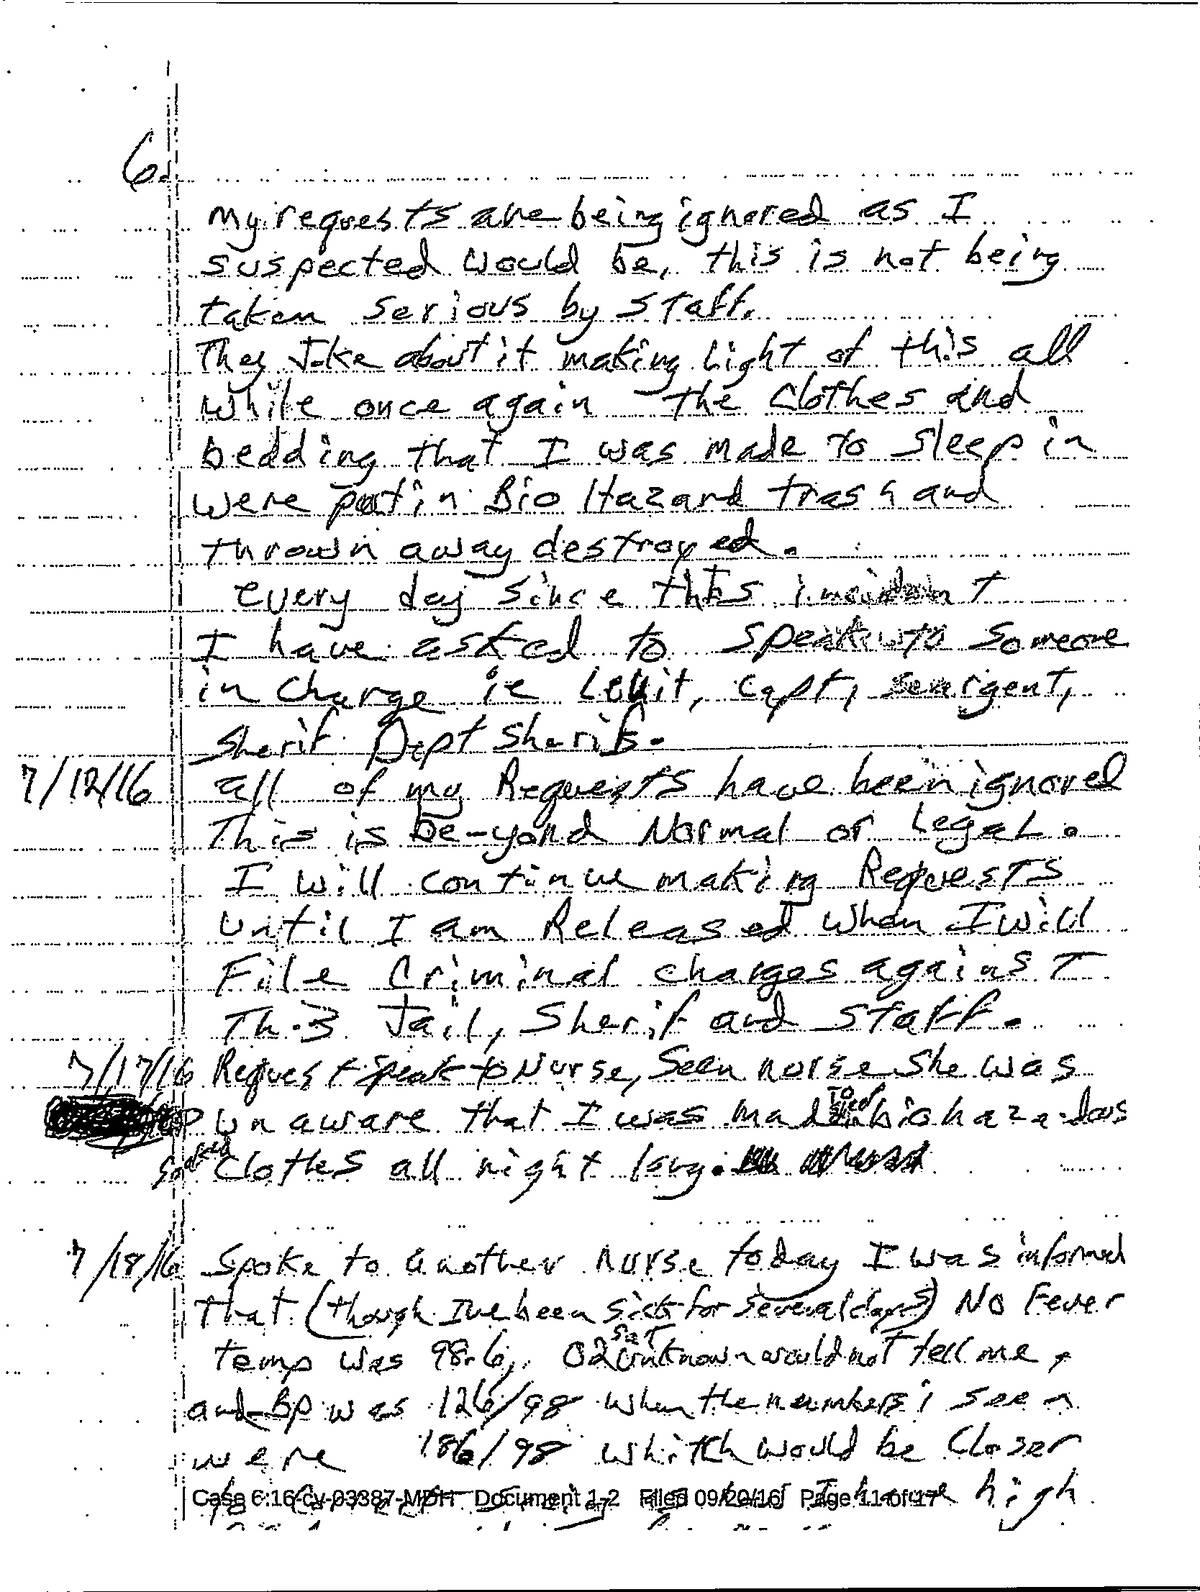 6.
My requests are being ignored as I
suspected would be, this is not being
taken serious by staff.
They Joke about it making Light of this all
while once again the Clothes and
bedding that I was made to sleep in
were put in Bio Hazard trash and
thrown away destroyed.
every day since this
I have asked to speak to someone
in charge ie Capt,
Sherif Dept Sherif.
7/12/16 all of my Requests have been ignored
This is be-yond Normal or Legal.
I will continue making Requests
until I am Released when I will
File Criminal charges against
Jail, Sherif and staff.
7/17/16 Request speak to Nurse, Seen nurse she was
unaware that I was made
soaked Clothes all night long.
7/18/16 Spoke to another nurse today I was informed
that (though I've been sick for several days) No Fever
temp was 98.6, O2 sat unknown would not tell me,
and BP was 126/98 when the numbers i seen
were 186/98 whitch would be Closer
I have high
Case 6:16-cv-03387-MDH Document 1-2 Filed 09/20/16 Page 11 of 17